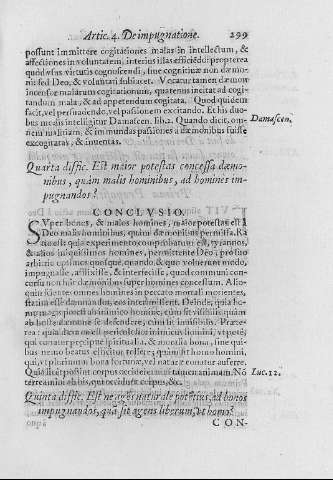 Artic. 4. De impugnatione. 299
possunt immittere cogitationes malas in intellectum, &
affectiones in voluntatem, interius illas efficiēdo: propterea
quòd vis virtutis cognoscendi, siue cognitiuæ non dæmo-
ni sed Deo, & voluntati subiacet. Vocatur tamen dæmon
incensor malarum cogitationum, quatenus incitat ad cogi-
tandum mala, & ad appetendum cogitata. Quod quidem
facit, vel persuadendo, vel passionem excitādo. Et his duo-
bus modis intelligitur Damascen. lib. 2. Quando dicit, om-
nem malitiam, & inmundas passiones à dæmonibus fuisse
excogitatas, & inuentas.
Damascen.
Quarta diffic. Est maior potestas concessa dæmo-
nibus, quàm malis hominibus, ad homines im-
pugnandos?
CONCLVSIO.
SVper bonos, & malos homines, maior potestas est à
Deo malis hominibus, quàm dæmonibus permissa. Ra-
tio est quia experimento comprobatum est, tyrannos,
& alios iniquissimos homines, permittente Deo, pro suo
arbitrio quosque, quando, & quo voluerunt modo,
impugnasse, afflixisse, & interfecisse, quod communi con-
cursu non habēt dæmonibus super homines concessum. Alio-
quin omnes homines in peccato mortali nocentes,
statim esset damnandum, eos interimissent. Deinde, quia ho-
mo magis potest ab inimico homine, cùm sit visibilis quàm
ab hoste dæmone se defendere, cùm sit inuisibilis. Præte-
rea: quia dæmon
qui conatur præcipuè spiritualia, & moralia bona, sine qui-
bus nemo beatus efficitur tollere; quàm sit homo homini,
qui, vt plurimùm bona fortunæ, vel naturæ conatur auferre.
Quia licèt possint corpus occidere, non tamen animam. Nō
terreamini ab his, qui occidunt corpus, &c.
Luc. 12.
Quinta diffic. Est ne agens naturale potentius, ad bonos
impugnandos, quàm sit agens liberum, vt homo?
CON-